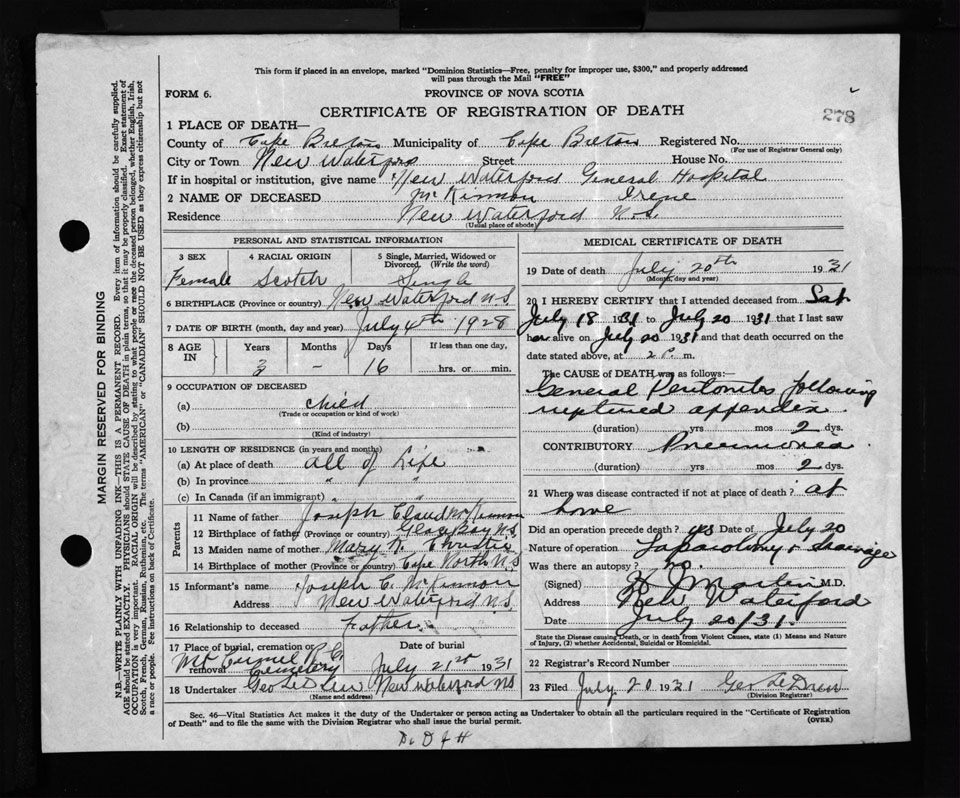 This form if placed in an envelope, marked "Dominion Statistics—Free, penalty for improper use, $300," and properly addressed
will pass through the Mail "FREE"
FORM 6.
PROVINCE OF NOVA SCOTIA
CERTIFICATE OF REGISTRATION OF DEATH
278
1 PLACE OF DEATH—
County of Cape Breton Municipality of Cape Breton Registered No.
(For use of Registrar General only)
City or Town New Waterford Street House No.
If in hospital or institution, give name New Waterford General Hospital
2 NAME OF DECEASED McKinnon Irene
Residence New Waterford N.S.
(Usual place of abode)
PERSONAL AND STATISTICAL INFORMATION
3 SEX 4 RACIAL ORIGIN 5 Single, Married, Widowed or Divorced. (Write the word)
Female Scotch Single
6 BIRTHPLACE (Province or country) New Waterford N.S.
7 DATE OF BIRTH (month, day and year) July 4th 1928
8 AGE IN Years Months Days If less than one day,
3 - 16 hrs. or min.
9 OCCUPATION OF DECEASED
(a) child
(Trade or occupation or kind of work)
(b)
(Kind of industry)
10 LENGTH OF RESIDENCE (in years and months)
(a) At place of death all of life
(b) In province " "
(c) In Canada (if an immigrant) " "
Parents
11 Name of father Joseph Claud McKinnon
12 Birthplace of father (Province or country) Glace Bay N.S.
13 Maiden name of mother Mary Christie
14 Birthplace of mother (Province or country) Cape North N.S
15 Informant's name Joseph C. McKinnon
Address New Waterford N.S.
16 Relationship to deceased Father
17 Place of burial, cremation or removal Date of burial
Mt Carmel R.C. Cemetery July 21st 1931
18 Undertaker New Waterford NS
(Name and address)
MEDICAL CERTIFICATE OF DEATH
19 Date of death July 20th 1931
(Month, day and year)
20 I HEREBY CERTIFY that I attended deceased from Sat
July 18 1931 to July 20 1931 that I last saw
her alive on July 20 1931 and that death occurred on the
date stated above, at 2 P. m.
The CAUSE of DEATH was as follows:—
General Peritonitis following
ruptured appendix
(duration) yrs mos 2 dys.
CONTRIBUTORY Pneumonia
(duration) yrs mos 2 dys.
21 Where was disease contracted if not at place of death? at
home
Did an operation precede death? yes Date of July 20
Nature of operation Laparotomy & drainage
Was there an autopsy? no.
(Signed) J Marten M.D.
Address New Waterford
Date July 20/31.
State the Disease causing Death, or in death from Violent Causes, state (1) Means and Nature
of Injury, (2) whether Accidental, Suicidal or Homicidal.
22 Registrar's Record Number
23 Filed July 20 1931 Geo
(Division Registrar)
Sec. 46—Vital Statistics Act makes it the duty of the Undertaker or person acting as Undertaker to obtain all the particulars required in the "Certificate of Registration
of Death" and to file the same with the Division Registrar who shall issue the burial permit.
(OVER)
MARGIN RESERVED FOR BINDING
N.B.—WRITE PLAINLY WITH UNFADING INK—THIS IS A PERMANENT RECORD. Every item of information should be carefully supplied.
AGE should be stated EXACTLY. PHYSICIANS should STATE CAUSE OF DEATH in plain terms, so that it may be properly classified. Exact statement of
OCCUPATION is very important. RACIAL ORIGIN will be described by stating to what people or race the deceased person belonged, whether English, Irish,
Scotch, French, German, Russian, Ruthenian, etc. The terms "AMERICAN" or "CANADIAN" SHOULD NOT BE USED as they express citizenship but not
a race or people. See instructions on back of Certificate.